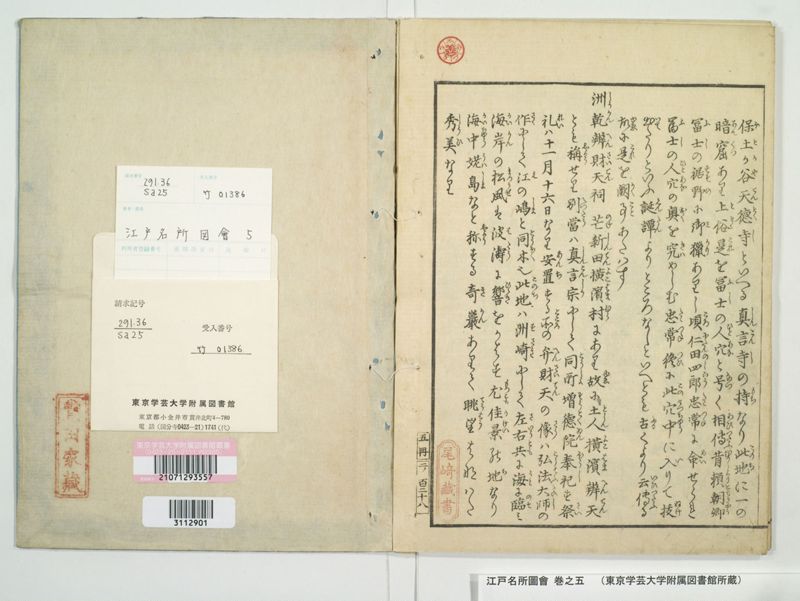 保土が谷天徳寺といへる真言寺の持なり此地に一の
暗窟あり土俗是を冨士の人穴と号く相傳昔頼朝卿
冨士の裾野に御獵ありし頃仁田四郎忠常に命せられ
冨士の人穴の奥を究めしむ忠常終に此穴中に入りて技
出たりといふ誕譚よりところなしといへとも古くより云傳る
所是を闕事あたはす
洲乾辨財天祠 芒新田横濱村にあり故に土人横濱辨天
とも稱せり別當ハ真言宗にして同所増徳院奉祀せり祭
礼ハ十一月十六日なり安置する所の弁財天の像ハ弘法大師の
作にして江の嶋と同木也此地ハ洲崎にして左右共に海に臨ミ
海岸の松風ハ波濤に響をかはす尤佳景の地なり
海中姥島なと称する奇巖ありて眺望はなハた
秀美なり
五ノ冊 百三十八
尾崎藏書
291.36
Sa25
竹 01386
江戸名所図會 5
請求記号
291.36
Sa25
受入番号
竹 01386
東京学芸大学附属図書館
東京都小金井市貫井北町4-780
電話(国分寺0423-21)1741(代)
東京学芸大学附属図書館蔵書
21071293557
3112901
家藏
江戸名所圖會 巻之五 (東京学芸大学附属図書館所蔵)